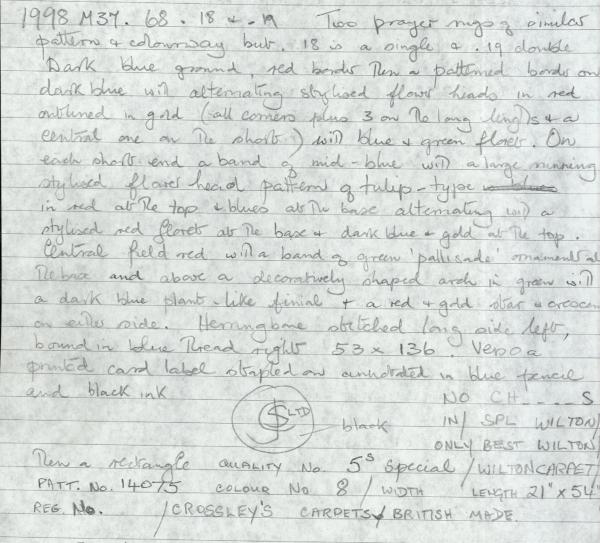 1998 M37. 68. 18 + .19 Two prayer rugs of similar
pattern + colourway but .18 is a single + .19 double
Dark blue ground, red border then a patterned border on
dark blue with alternating stylised flower heads in red
outlined in gold (all corners plus 3 on the long lengths + a
central one on the short) with blue + green florets. On
each short end a band of mid-blue with a large running
stylised flower head pattern of tulip-type
in red at the top + blues at the base alternating with a
stylised red floret at the base + dark blue + gold at the top.
Central field red with a band of green 'pallisade' ornament at
the base and above a decoratively shaped arch in green with
a dark blue plant-like finial + a red + gold star +
on either side. Herringbone stitched long side left,
bound in blue thread right 53 x 136. Verso a
printed card label stapled on annotated in blue pencil
and black ink
NO CH....S
JS LTD black IN/ SPL WILTON/
ONLY BEST WILTON/
Then a rectangle QUALITY No. 5s Special / WILTON CARPET/
PATT. No. 14075 COLOUR No 8 / WIDTH LENGTH 21" x 54"
REG. No. / CROSSLEY'S CARPETS/ BRITISH MADE.